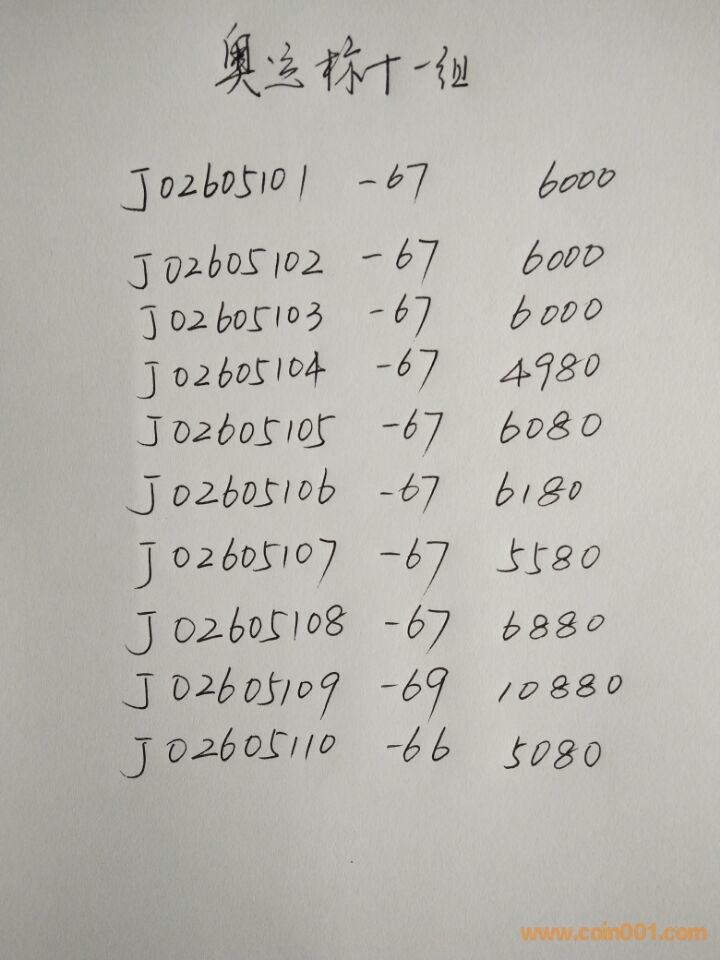 奥运标十一组
J02605101 -67 6000
J02605102 -67 6000
J02605103 -67 6000
J02605104 -67 4980
J02605105 -67 6080
J02605106 -67 6180
J02605107 -67 5580
J02605108 -67 6880
J02605109 -69 10880
J02605110 -66 5080
www.coin001.com